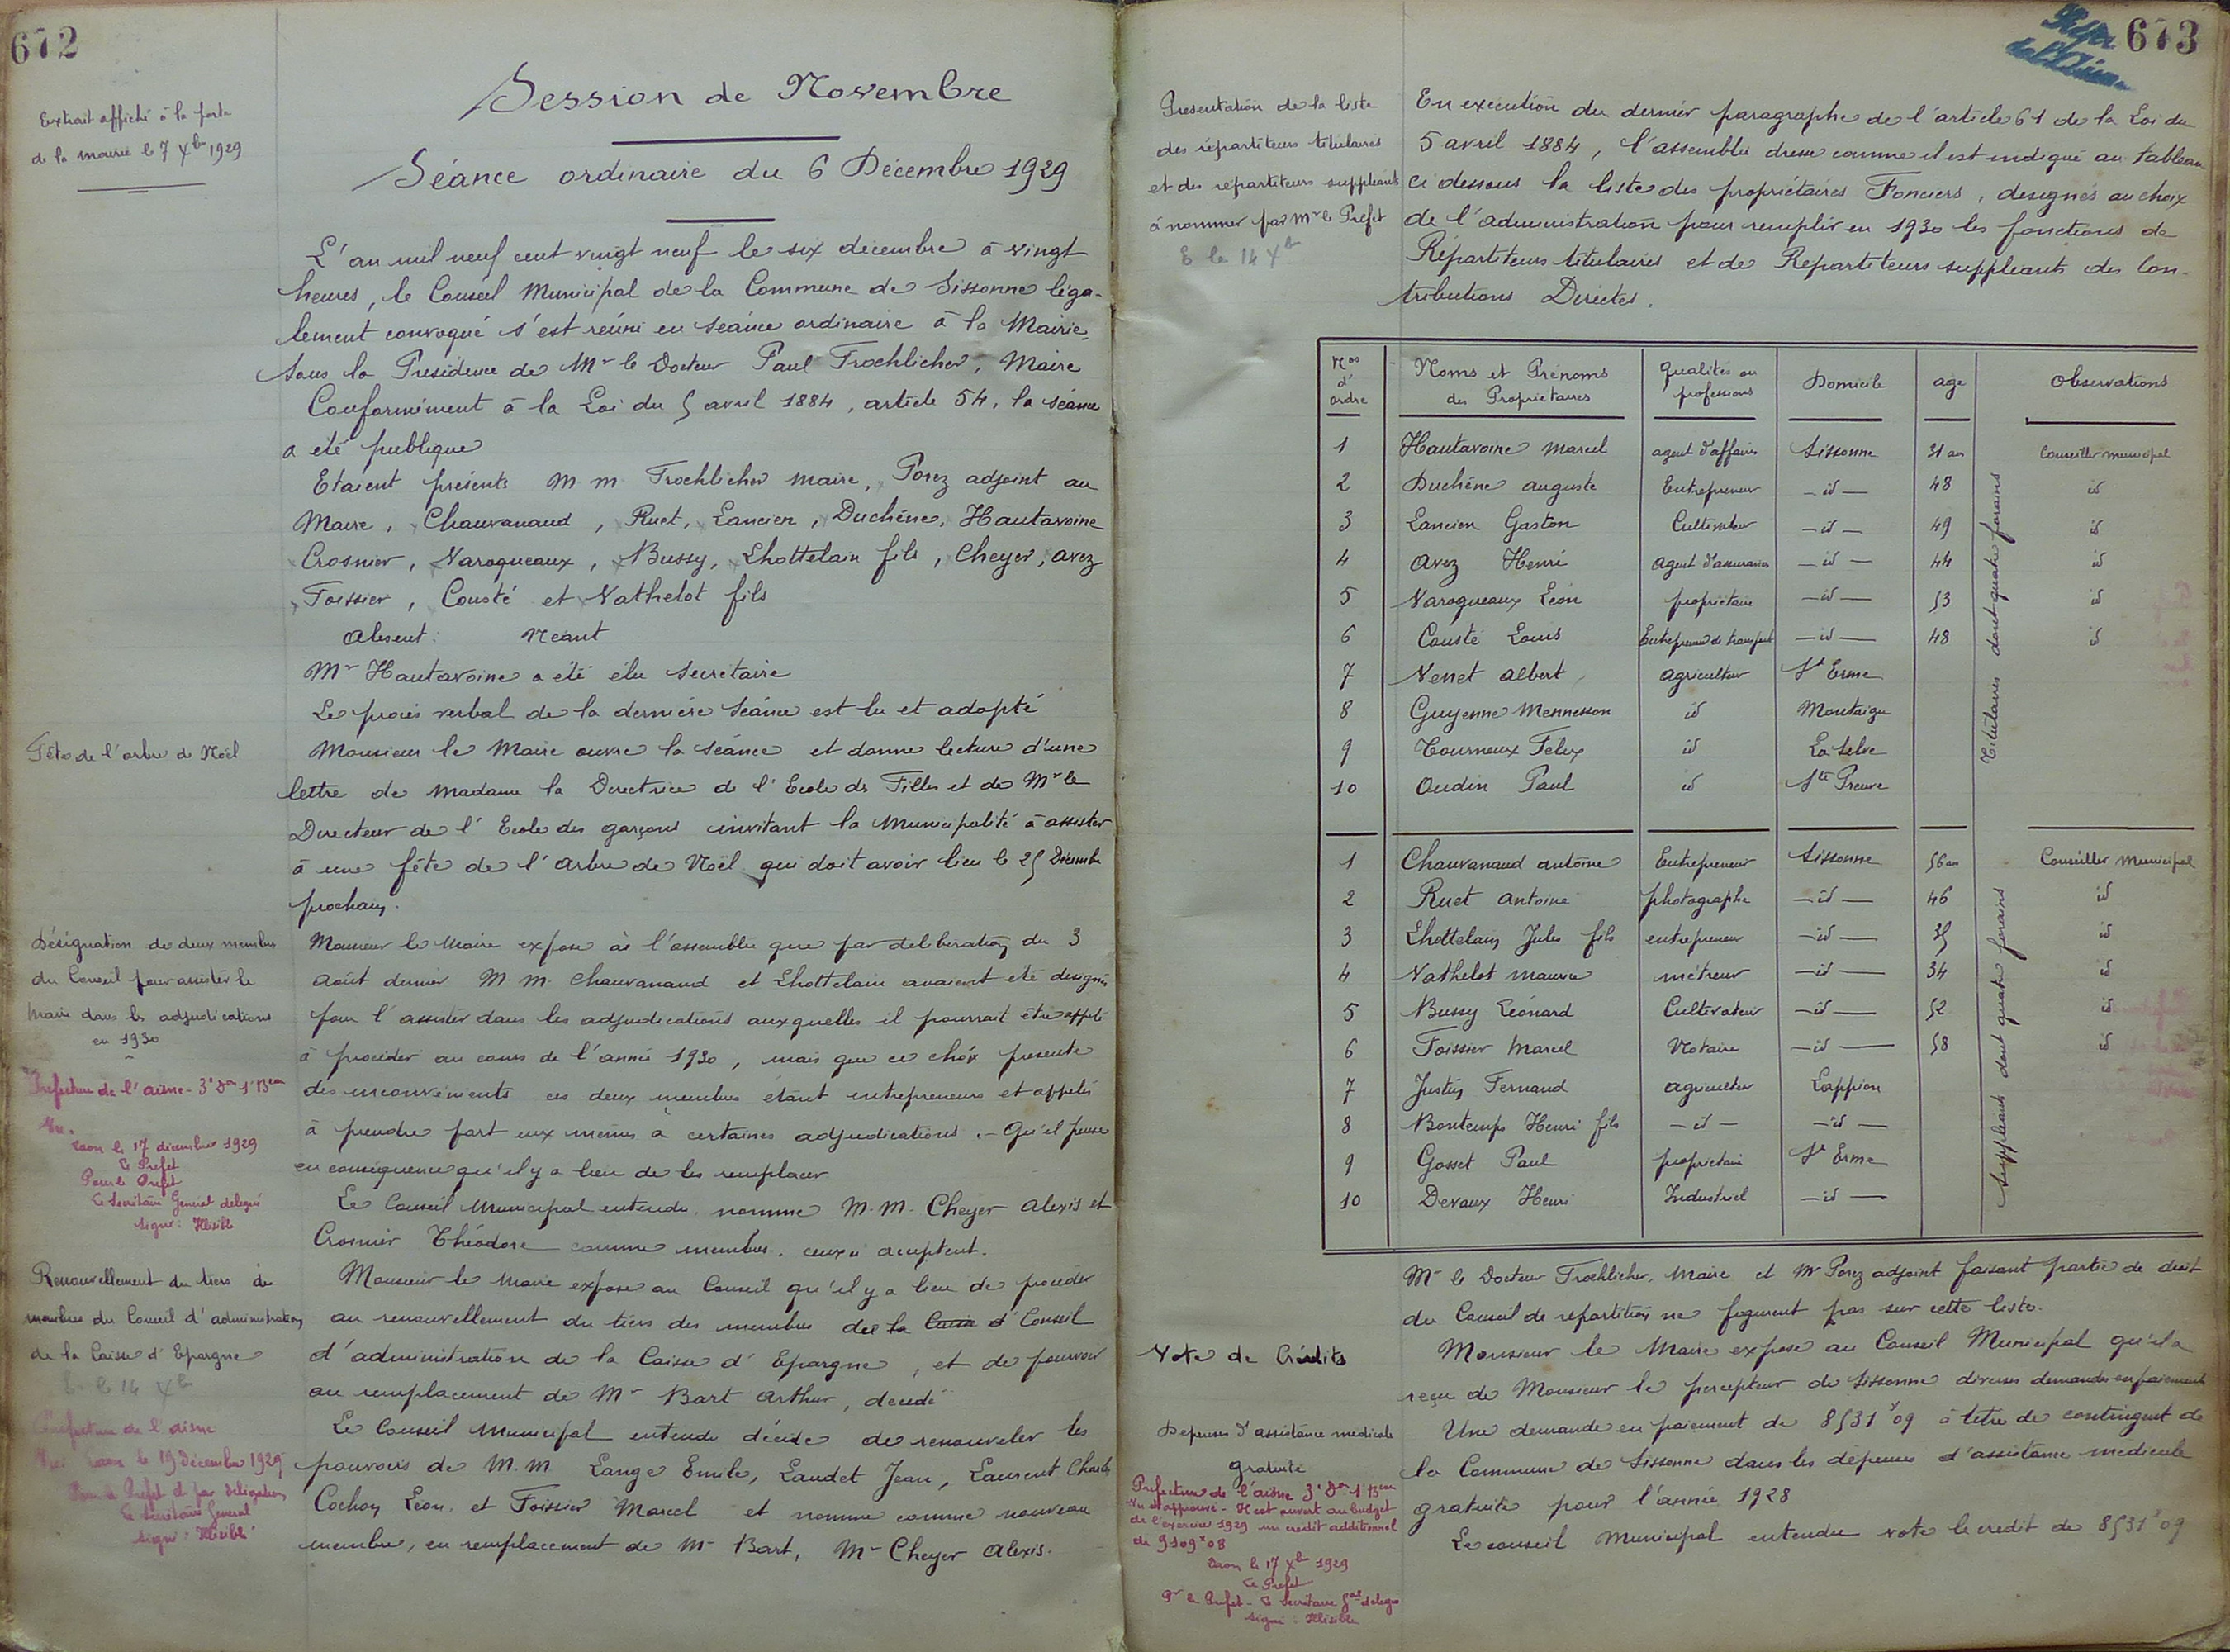 672
Extrait affiché à la porte
de la mairie le 7 Xbre 1929
Session de Novembre
Séance ordinaire du 6 Décembre 1929
L'an mil neuf cent vingt neuf le six décembre à vingt
heures, le Conseil Municipal de la Commune de Sissonne léga-
lement convoqué s'est réuni en séance ordinaire à la Mairie,
sous la Présidence de Mr le Docteur Paul Froehlicher, Maire
Conformément à la Loi du 5 avril 1884, article 54, la séance
a été publique
Etaient présents M.M. Froehlicher maire, Porez adjoint au
Maire, Chauvanaud, Ruet, Lancien, Duchêne, Hautavoine
Crosnier, Varoqueaux, Bussy, Lhottelain fils, Cheyer, Avez
Foissier, Cousté et Vathelot fils
Absent : Néant
Mr Hautavoine a été élu secrétaire
Le procès verbal de la dernière séance est lu et adopté
Fête de l'arbre de Noël
Monsieur le Maire ouvre la séance et donne lecture d'une
lettre de Madame la Directrice de l'Ecole des Filles et de Mr le
Directeur de l'Ecole des garçons invitant la Municipalité à assister
à une fête de l'arbre de Noël qui doit avoir lieu le 25 Décembre
prochain.
Désignation de deux membres
du Conseil pour assister le
Maire dans les adjudications
en 1930
Monsieur le Maire expose à l'assemblée que par deliberation du 3
Août dernier M.M. Chauvanaud et Lhottelain avaient été designés
pour l'assister dans les adjudications auxquelles il pourrait être appelé
à procéder au cours de l'année 1930, mais que ce choix presente
des inconvénients ces deux membres étant entrepreneurs et appelés
à prendre part eux mêmes à certaines adjudications. - Qu'il pense
en conséquence qu'il y a lieu de les remplacer
Le Conseil Municipal entendu nomme M.M. Cheyer Alexis et
Crosnier Théodore comme membres. ceux ci acceptent.
Préfecture de l'Aisne - 3e Don 1er Beau
Vu.
Laon le 17 décembre 1929
Le Préfet
Pour le Préfet
Le Secrétaire General délégué
Signé : Illisible
Renouvellement du tiers des
membres du Conseil d'administration
de la Caisse d'Epargne
E le 14 Xbre
Monsieur le Maire expose au Conseil qu'il y a lieu de procéder
au renouvellement du tiers des membres de la Caisse d' Conseil
d'administration de la Caisse d'Epargne, et de pourvoir
au remplacement de Mr Bart Arthur, décédé
Le Conseil Municipal entendu décide de renouveler les
pouvoirs de M.M Lange Emile, Laudet Jean, Laurent Charles
Cochon Léon, et Foissier Marcel et nomme comme nouveau
membre, en remplacement de Mr Bart, Mr Cheyer Alexis.
Préfecture de l'Aisne
Vu Laon le 19 Décembre 1929
Pour le Préfet et par délégation
Le Secrétaire General
Signé : Illisible
673
Présentation de la liste
des répartiteurs titulaires
et des répartiteurs suppléants
à nommer par Mr le Préfet
E le 14 Xbre
En exécution du dernier paragraphe de l'article 61 de la Loi du
5 avril 1884, l'assemblée dresse comme il est indiqué au tableau
ci dessous la liste des propriétaires Fonciers, designés au choix
de l'administration pour remplir en 1930 les fonctions de
Répartiteurs titulaires et de Répartiteurs suppléants des Con-
tributions Directes.
Nos d'ordre Noms et Prénoms des Propriétaires Qualités ou professions Domicile age Observations
1 Hautavoine Marcel agent d'affaires Sissonne 31 ans Conseiller municipal
2 Duchêne Auguste Entrepreneur id 48 id
3 Lancien Gaston Cultivateur id 49 id
4 Avez Henri Agent d'assurances id 44 id
5 Varoqueaux Léon propriétaire id 53 id
6 Cousté Louis Entrepreneur de transport id 48 id
7 Venet Albert agriculteur St Erme
8 Guyenne Mennesson id Montaigu
9 Tourneux Felix id La Selve
10 Oudin Paul id Ste Preuve
Titulaires dont quatre forains
1 Chauvanaud Antoine Entrepreneur Sissonne 56 ans Conseiller Municipal
2 Ruet Antoine photographe id 46 id
3 Lhottelain Jules fils entrepreneur id 35 id
4 Vathelot Maurice métreur id 34 id
5 Bussy Léonard Cultivateur id 52 id
6 Foissier Marcel Notaire id 58 id
7 Justin Fernand agriculteur Lappion
8 Bontemps Henri fils id id
9 Gosset Paul propriétaire St Erme
10 Devaux Henri Industriel id
Suppléants dont quatre forains
Mr le Docteur Froehlicher, Maire et Mr Porez adjoint faisant partie de droit
du Conseil de répartition ne figurent pas sur cette liste.
Vote de Crédits
Monsieur le Maire expose au Conseil Municipal qu'il a
reçu de Monsieur le percepteur de Sissonne diverses demandes en paiement
Dépenses d'assistance médicale
gratuite
Une demande en paiement de 8531f09 à titre de contingent de
la Commune de Sissonne dans les dépenses d'assistance médicale
gratuite pour l'année 1928
Le conseil Municipal entendu vote le crédit de 8531f09
Préfecture de l'Aisne 3e Don 1er Beau
Vu et approuvé - Il est ouvert au budget
de l'exercice 1929 un crédit additionnel
de 9109f08
Laon le 17 Xbre 1929
Le Préfet
Pr le Préfet - Le Secrétaire Gal délégué
Signé : Illisible